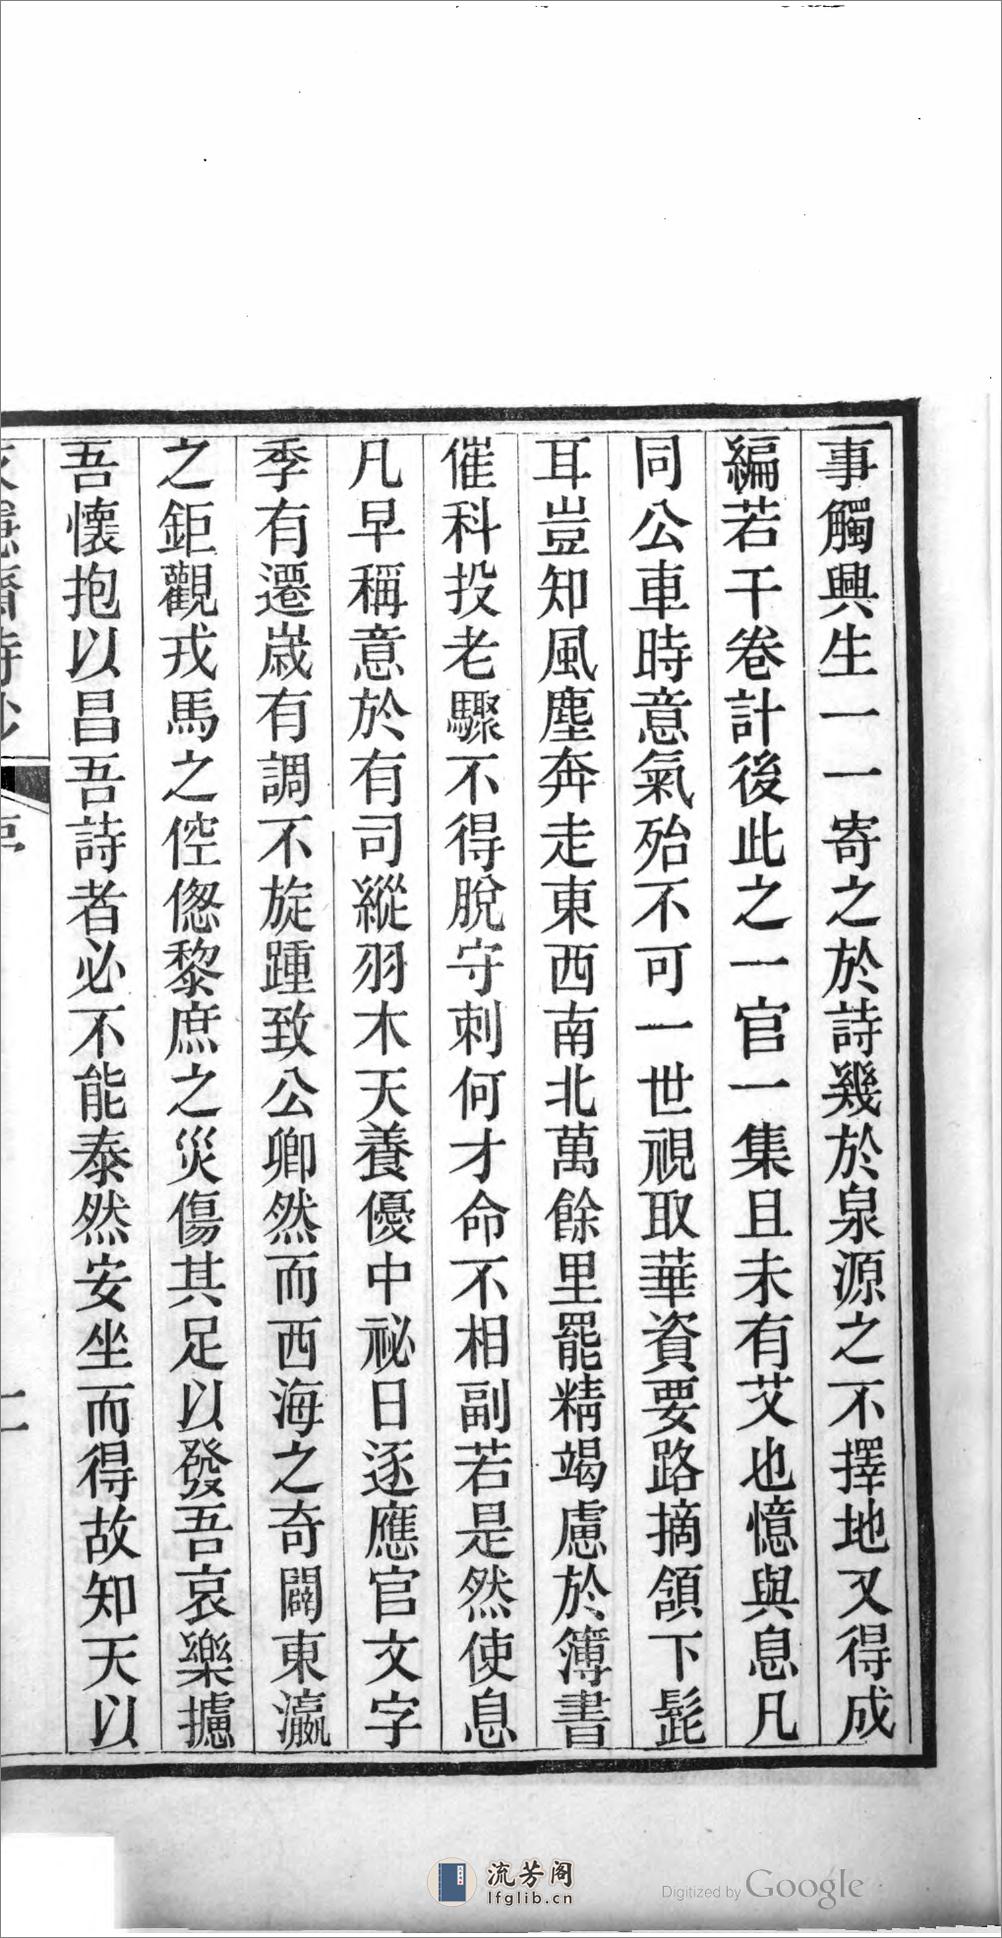 事觸興生一一寄之於詩幾於泉源之不擇地又得成
編若干卷計後此之一官一集且未有艾也憶與息凡
同公車時意氣殆不可一世視取華資要路摘頷下髭
耳豈知風塵奔走東西南北萬餘里罷精竭慮於簿書
催科投老驟不得脫守刺何才命不相副若是然使息
凡早稱意於有司縱羽木天養優中祕日逐應官文字
季有遷嵗有調不旋踵致公卿然而西海之奇闢東瀛
之鉅觀戎馬之倥傯黎庶之災傷其足以發吾哀樂攄
吾懷抱以昌吾詩者必不能泰然安坐而得故知天以
齋詩
流芳阁
lfglib.cn
Digitized by Google